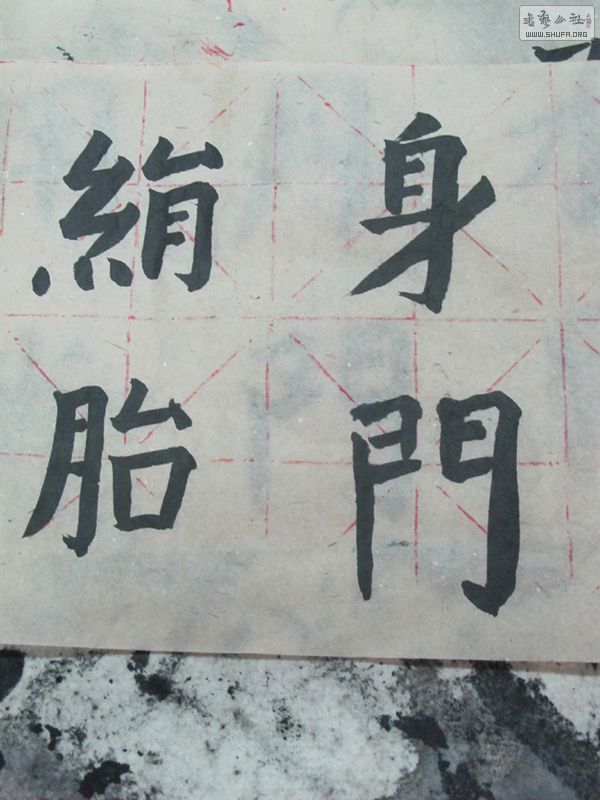 身門
絹胎
書藝公社
WWW.SHUFA.ORG